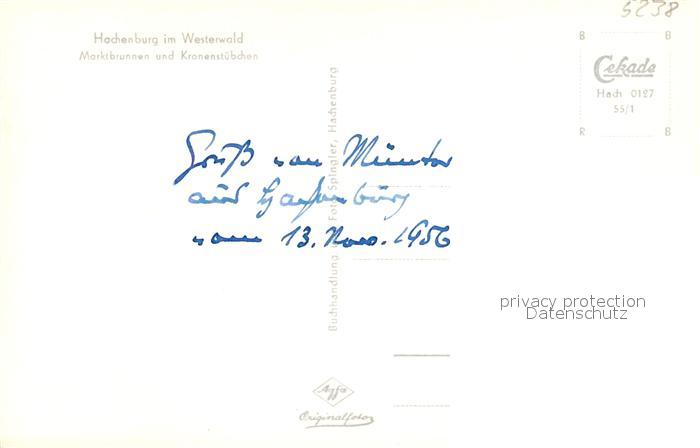 5238
Hachenburg im Westerwald
Marktbrunnen und Kronenstübchen
B B
Cekade
Hach 0127
55/1
R B
Buchhandlung u. Foto Spingler, Hachenburg
Gruß von Müntor
aus Hachenburg
vom 13. Nov. 1956
privacy protection
Datenschutz
Agfa
Originalfoto